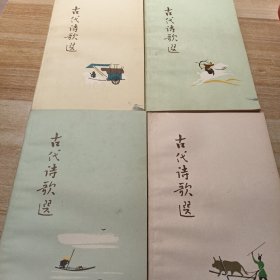 古代诗歌選
古代诗歌選
古代诗歌選
古代诗歌選